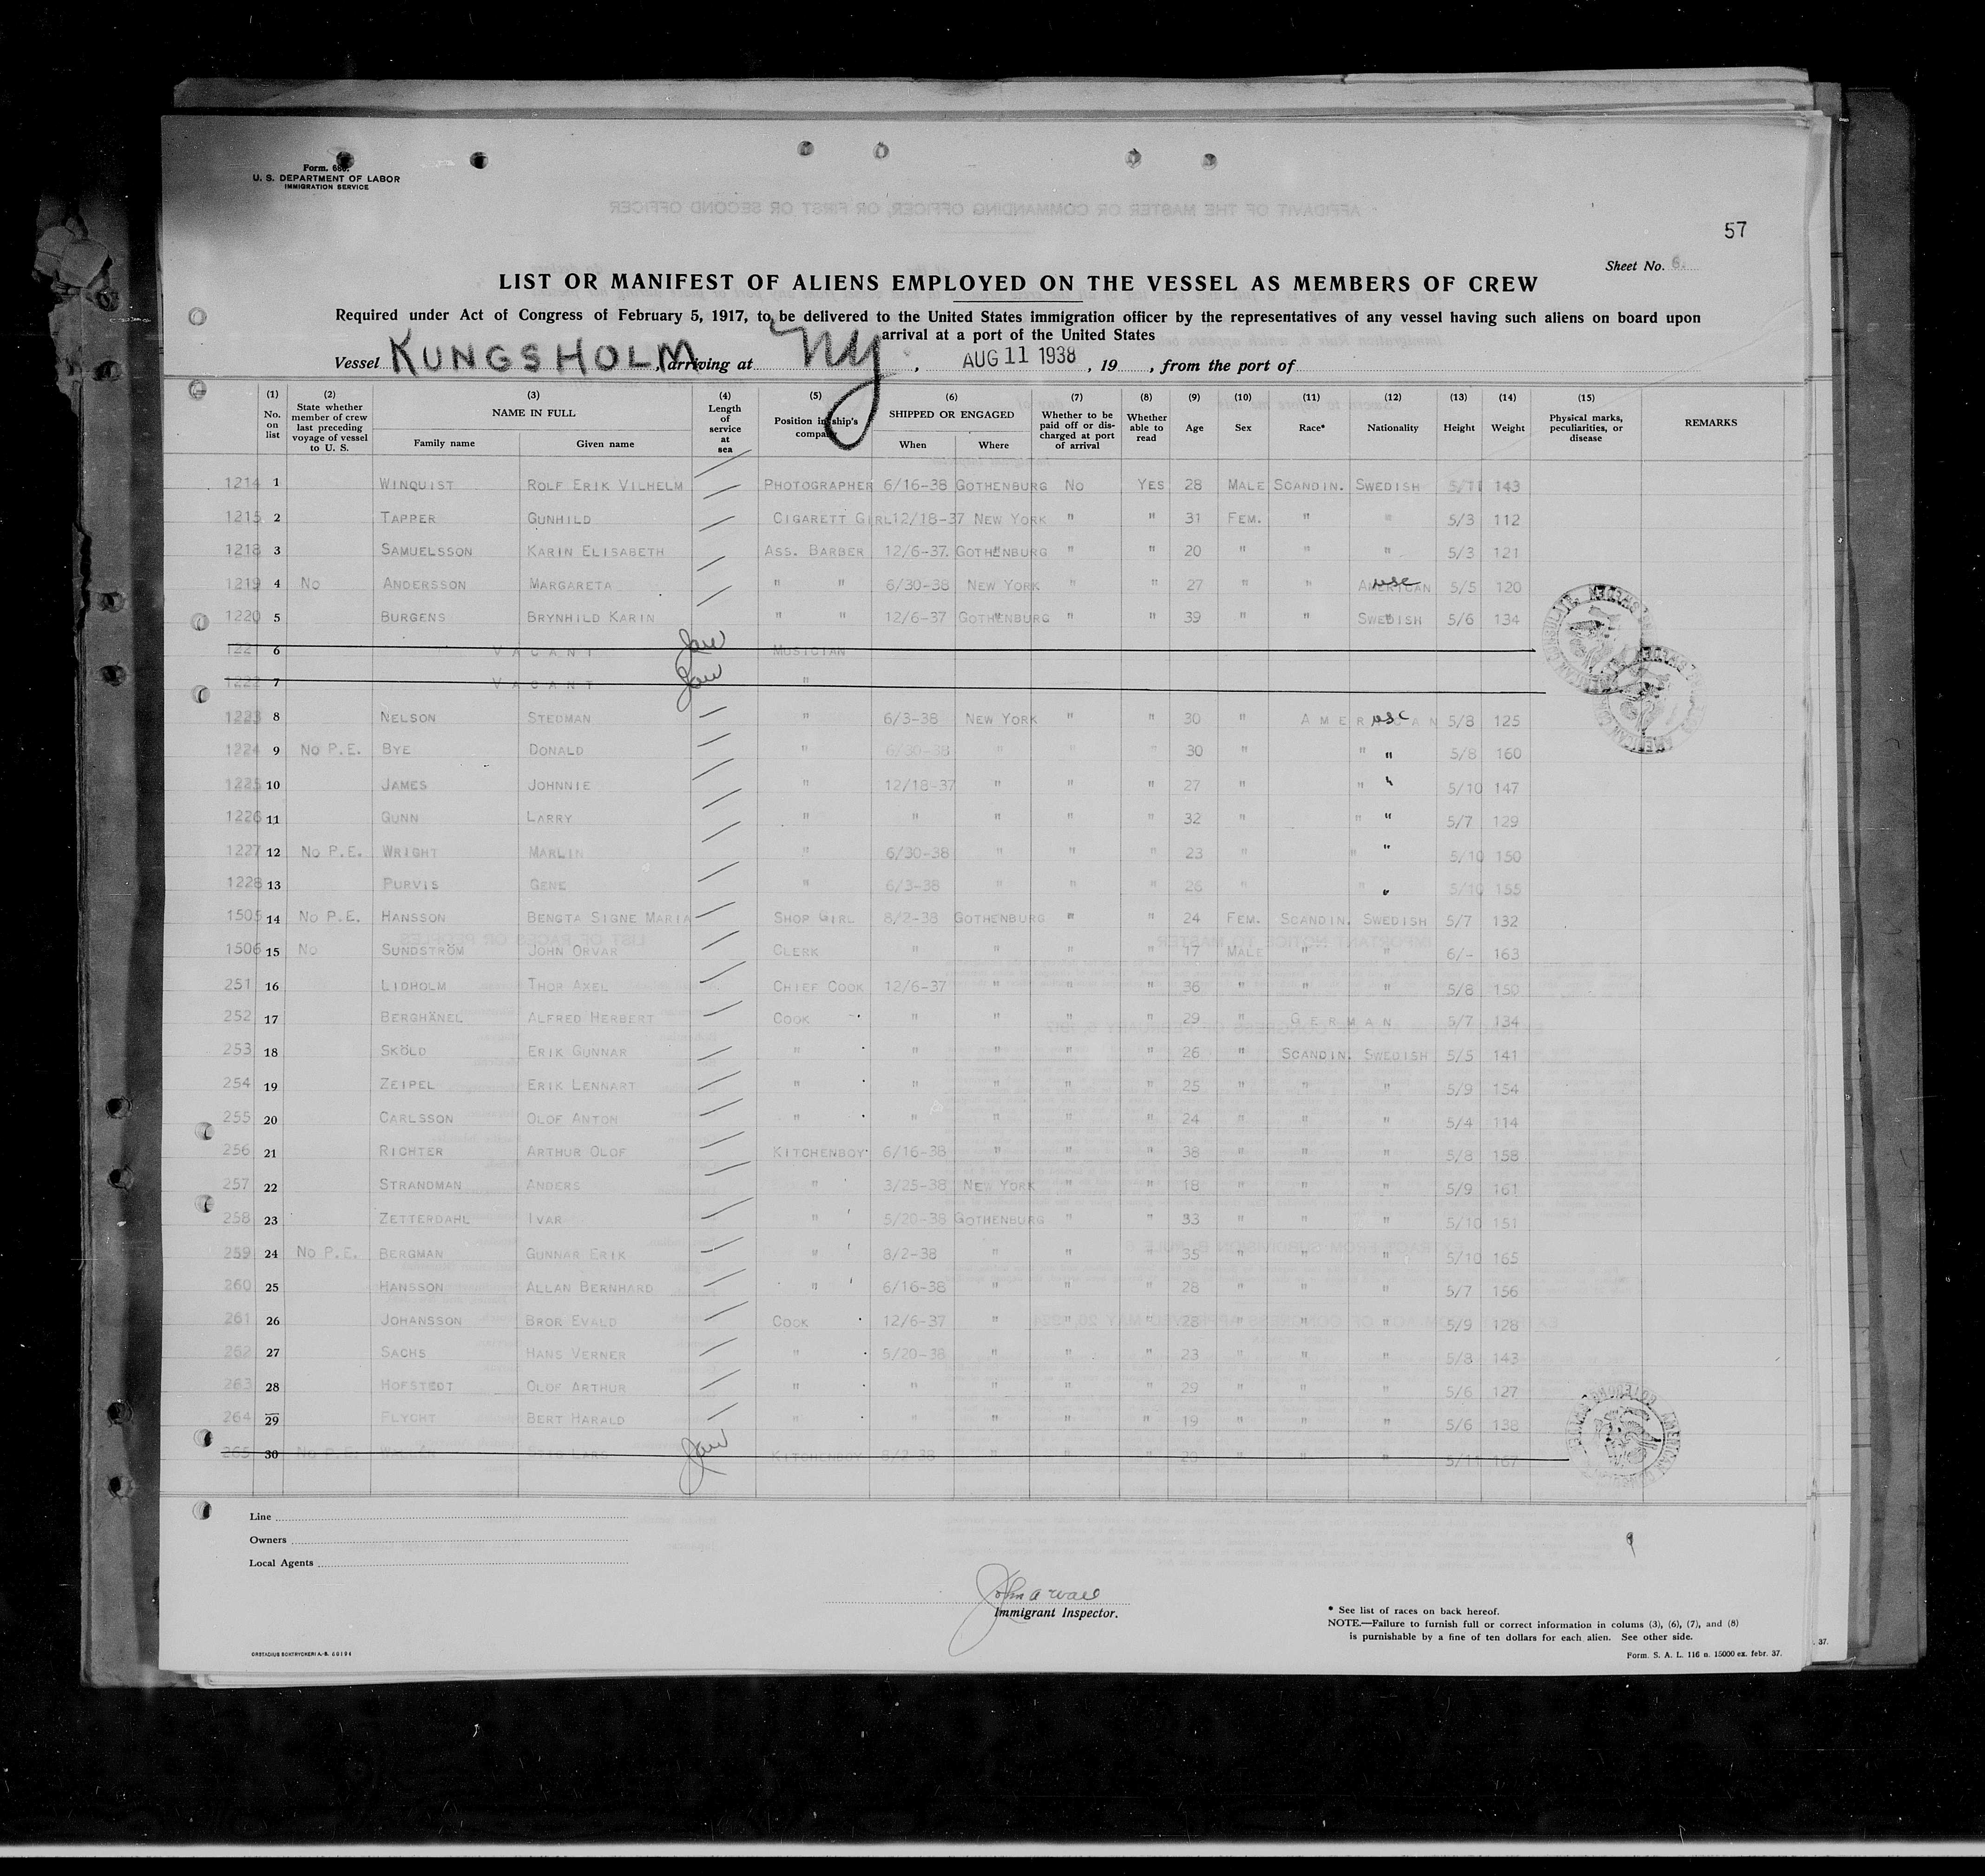 Form. 680.
U. S. DEPARTMENT OF LABOR
IMMIGRATION SERVICE
57
Sheet No. 6.
LIST OR MANIFEST OF ALIENS EMPLOYED ON THE VESSEL AS MEMBERS OF CREW
Required under Act of Congress of February 5, 1917, to be delivered to the United States immigration officer by the representatives of any vessel having such aliens on board upon
arrival at a port of the United States
Vessel KUNGSHOLM, arriving at NY, AUG 11 1938, 19 , from the port of
(1) No. on list (2) State whether member of crew last preceding voyage of vessel to U. S. (3) NAME IN FULL Family name Given name (4) Length of service at sea (5) Position in ship's company (6) SHIPPED OR ENGAGED When Where (7) Whether to be paid off or discharged at port of arrival (8) Whether able to read (9) Age (10) Sex (11) Race* (12) Nationality (13) Height (14) Weight (15) Physical marks, peculiarities, or disease REMARKS
1214 1 WINQUIST ROLF ERIK VILHELM PHOTOGRAPHER 6/16-38 GOTHENBURG NO YES 28 MALE SCANDIN. SWEDISH 5/11 143
1215 2 TAPPER GUNHILD CIGARETT GIRL 12/18-37 NEW YORK " " 31 FEM. " " 5/3 112
1218 3 SAMUELSSON KARIN ELISABETH ASS. BARBER 12/6-37. GOTHENBURG " " 20 " " " 5/3 121
1219 4 NO ANDERSSON MARGARETA " " 6/30-38 NEW YORK " " 27 " " AMERICAN usc 5/5 120
1220 5 BURGENS BRYNHILD KARIN " " 12/6-37 GOTHENBURG " " 39 " " SWEDISH 5/6 134
122 6 VACANT Jaw MUSICIAN
1222 7 VACANT Jaw "
1223 8 NELSON STEDMAN " 6/3-38 NEW YORK " " 30 " AMERICAN usc 5/8 125
1224 9 NO P.E. BYE DONALD " 6/30-38 " " " 30 " " " 5/8 160
1225 10 JAMES JOHNNIE " 12/18-37 " " " 27 " " " 5/10 147
1226 11 GUNN LARRY " " " " " 32 " " " 5/7 129
1227 12 NO P.E. WRIGHT MARLIN " 6/30-38 " " " 23 " " " 5/10 150
1228 13 PURVIS GENE " 6/3-38 " " " 26 " " " 5/10 155
1505 14 NO P.E. HANSSON BENGTA SIGNE MARIA SHOP GIRL 8/2-38 GOTHENBURG " " 24 FEM. SCANDIN. SWEDISH 5/7 132
1506 15 NO SUNDSTRÖM JOHN ORVAR CLERK " " " " 17 MALE " " 6/- 163
251 16 LIDHOLM THOR AXEL CHIEF COOK 12/6-37 " " " 36 " " " 5/8 150
252 17 BERGHÄNEL ALFRED HERBERT COOK " " " " 29 " GERMAN 5/7 134
253 18 SKÖLD ERIK GUNNAR " " " " " 26 " SCANDIN. SWEDISH 5/5 141
254 19 ZEIPEL ERIK LENNART " " " " " 25 " " " 5/9 154
255 20 CARLSSON OLOF ANTON " " " " " 24 " " " 5/4 114
256 21 RICHTER ARTHUR OLOF KITCHENBOY 6/16-38 " " " 38 " " " 5/8 158
257 22 STRANDMAN ANDERS " 3/25-38 NEW YORK " " 18 " " " 5/9 161
258 23 ZETTERDAHL IVAR " 5/20-38 GOTHENBURG " " 33 " " " 5/10 151
259 24 NO P.E. BERGMAN GUNNAR ERIK " 8/2-38 " " " 35 " " " 5/10 165
260 25 HANSSON ALLAN BERNHARD " 6/16-38 " " " 28 " " " 5/7 156
261 26 JOHANSSON BROR EVALD COOK 12/6-37 " " " 28 " " " 5/9 128
262 27 SACHS HANS VERNER " 5/20-38 " " " 23 " " " 5/8 143
263 28 HOFSTEDT OLOF ARTHUR " " " " " 29 " " " 5/6 127
264 29 FLYCHT BERT HARALD " " " " " 19 " " " 5/6 138
265 30 NO P.E. LARS Jaw KITCHENBOY 8/2-38 " " " 20 " " " 5/11 167
Line
Owners
Local Agents
John A Wall
Immigrant Inspector.
* See list of races on back hereof.
NOTE.—Failure to furnish full or correct information in colums (3), (6), (7), and (8)
is punishable by a fine of ten dollars for each alien. See other side.
Form. S. A. L. 116 n. 15000 ex. febr. 37.
37.